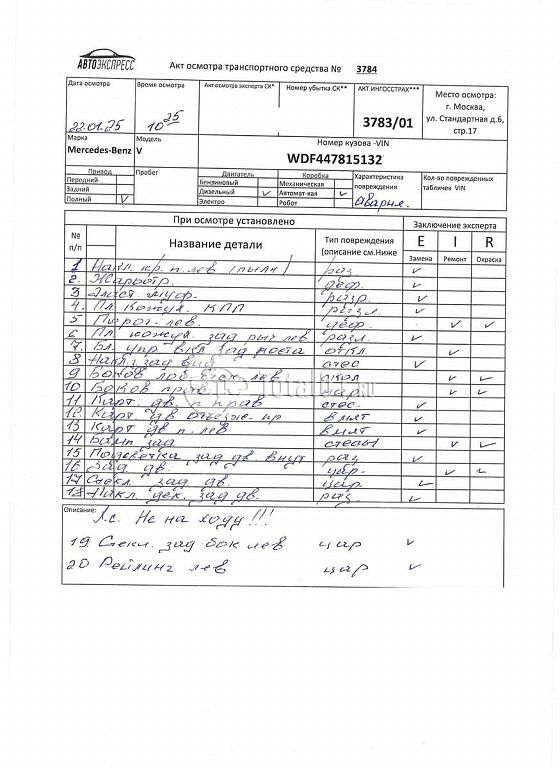 АВТОЭКСПРЕСС
Акт осмотра транспортного средства № 3784
Дата осмотра Время осмотра Акт осмотра эксперта СК* Номер убытка СК** АКТ ИНГОССТРАХ*** Место осмотра:
г. Москва,
ул. Стандартная д.6,
стр.17
22.01.25 10 25 3783/01
Марка Модель Номер кузова -VIN
Mercedes-Benz V WDF447815132
Привод Пробег Двигатель Коробка Характеристика повреждения Кол-во поврежденных табличек VIN
Передний Бензиновый Механическая
Задний Дизельный V Автомат-кая V аварийн.
Полный V Электро Робот
При осмотре установлено Заключение эксперта
№ п/п Название детали Тип повреждения (описание см.Ниже E I R
Замена Ремонт Окраска
1 Накл. кр. п. лев (пыльн) раз
2. деф.
3 Эласт. муф. разр.
4. Пл. кожух. КПП разл.
5 Порог лев. деф.
6 Пл. кожух. зад рыч лев разл.
7. Бл. упр вкл зад моста откл.
8 Накл. зад
9 Боков лев скол
10 Боков прав. цар.
11 Карт. дв. п прав
12. Карт дв пр вмят
13 Карт дв п. лев вмят
14 Бамп зад
15 Подсветка зад дв. внут раз
16 Зад дв. цар.
17 Стекл. зад дв. цар.
18 Накл. дек. зад дв. раз.
Описание: А.с. Не на ходу!!!
19 Стекл. зад бок лев цар
20 Рейлинг лев цар